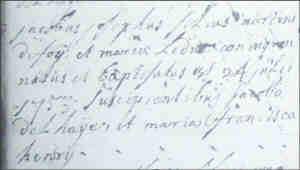 jacobus josephus filius martini
de foy et mariae Ledue coniugum
natus et baptisatus est 24 julij
suscipientibus jacobo
de Lhaye, et maria francisca
henry